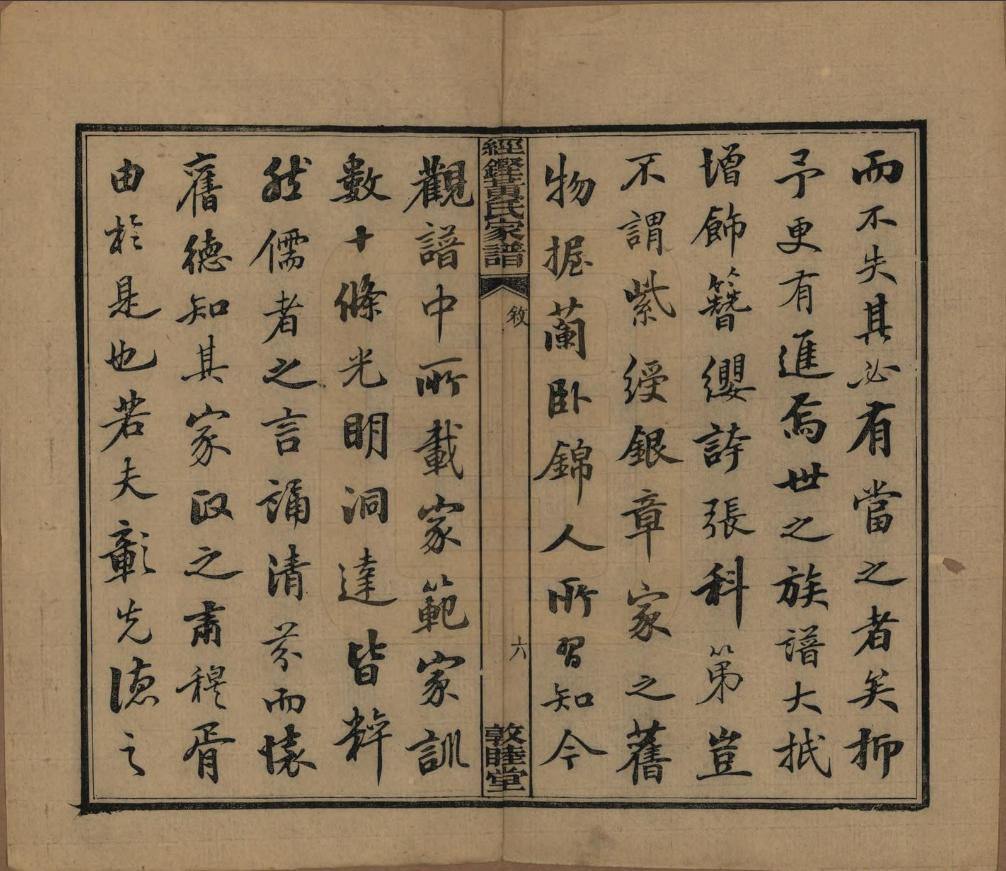 而不失其必有當之者矣抑
予更有進焉世之族譜大抵
增飾簪纓誇張科第豈
不謂紫綬銀章家之舊
物握蘭卧錦人所習知今
經鏗黃氏家譜
敘
六
敦睦堂
觀譜中所載家範家訓
數十條光明洞達皆粹
然儒者之言誦清芬而懷
舊德知其家政之肅穆胥
由於是也若夫彰先德之